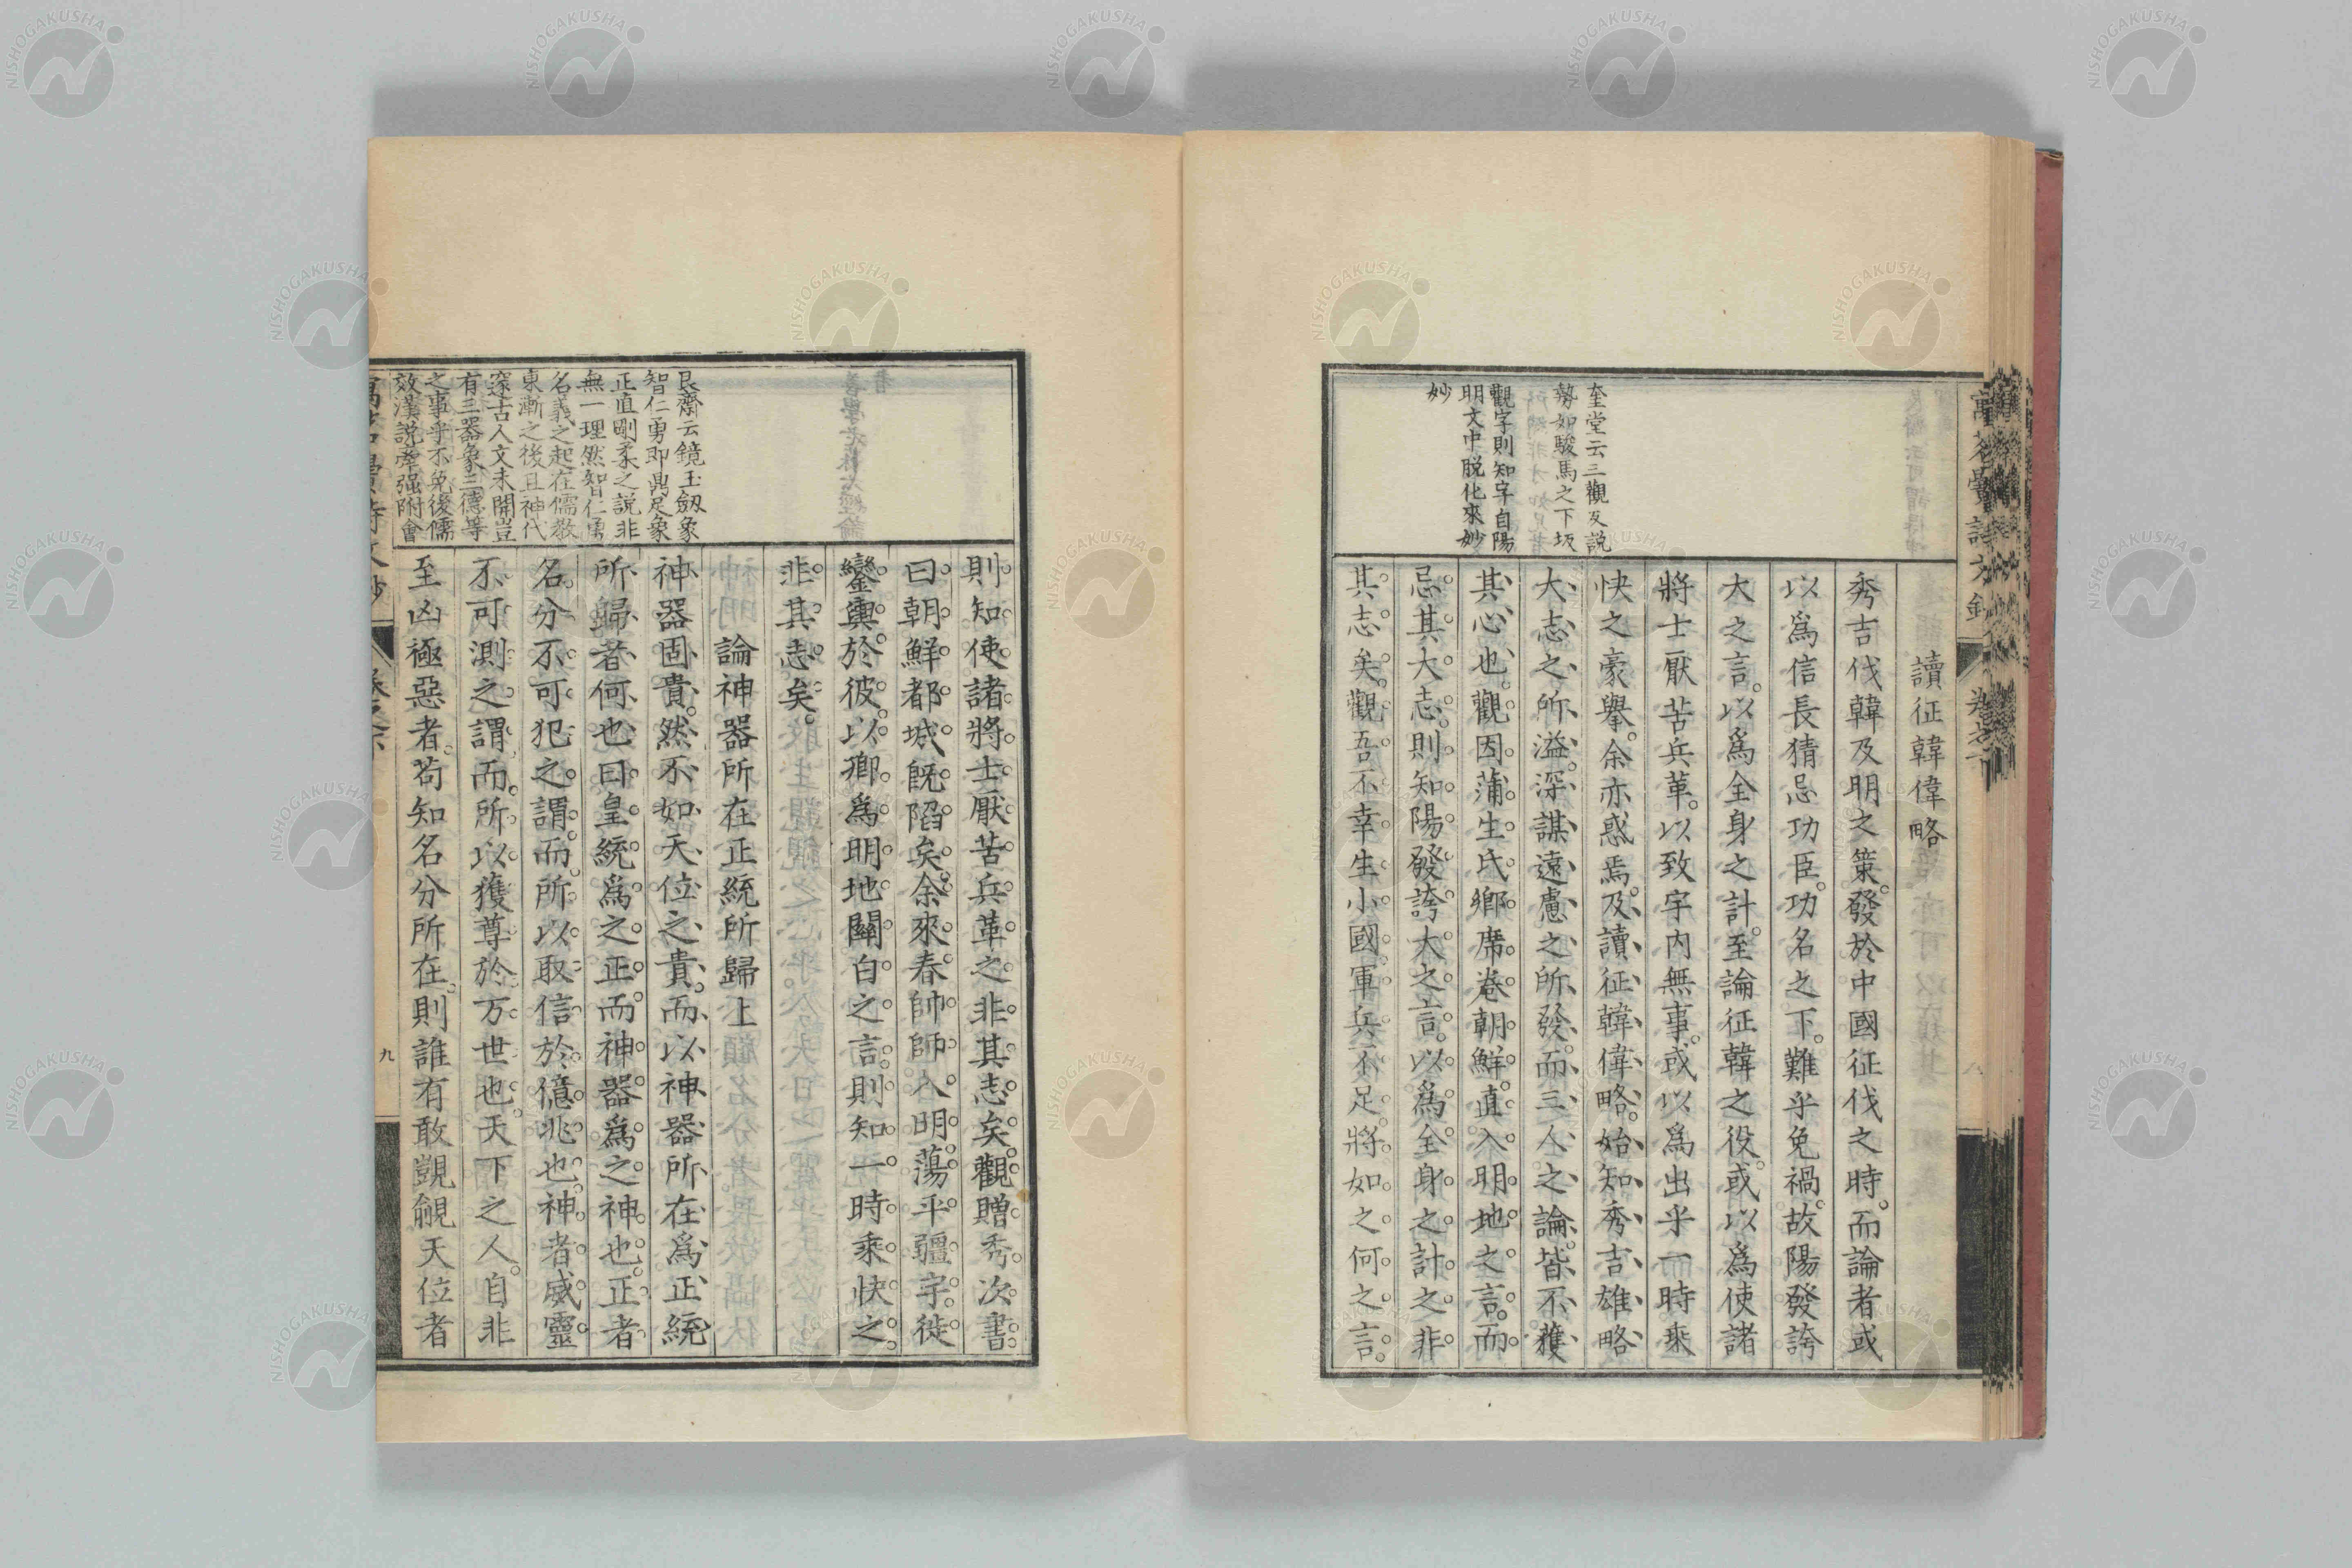 讀征韓偉略
秀吉伐韓及明之策。發於中國征伐之時。而論者或
以爲信長猜忌功臣。功名之下。難乎免禍。故陽發誇
大之言。以爲全身之計。至論征韓之役。或以爲使諸
將士厭苦兵革。以致宇内無事。或以爲出乎一時乘
快之豪擧。余亦惑焉。及讀征韓偉略。始知秀吉雄略
大志之所溢。深謀遠慮之所發。而三人之論。皆不獲
其心也。觀因蒲生氏鄕席卷朝鮮。直入明地之言。而
忌其大志。則知陽發誇大之言。以爲全身之計之非
其志矣。觀吾不幸生小國。軍兵不足。將如之何之言。
奎堂云三觀反説
勢如駿馬之下坂
觀字則知字自陽
明文中脱化來妙
妙
則知使諸將士厭苦兵革之非其志矣。觀贈秀次書。
曰朝鮮都城既陷矣。余來春帥師入明。蕩平疆宇。徙
鑾輿於彼。以卿爲明地關白之言。則知一時乘快之
非其志矣。
論神器所在正統所歸上
神器固貴。然不如天位之貴。而以神器所在爲正統
所歸者何也。曰皇統爲之正。而神器爲之神也。正者
名分不可犯之謂。而所以取信於億兆也。神者威靈
不可測之謂。而所以獲尊於万世也。天下之人。自非
至凶極惡者。苟知名分所在。則誰有敢覬覦天位者
艮齋云鏡玉劔象
智仁勇即鼎足象
正直剛柔之説非
無一理然智仁勇
名義之起在儒教
東漸之後且神代
邃古人文未開豈
有三器象三德等
之事乎不免後儒
效漢説牽强附會
九